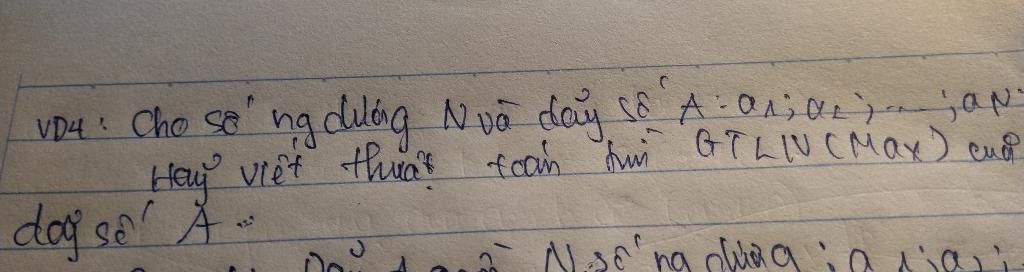 VD4: Cho số ng dương N và dãy số A: a1; a2; ...; aN.
Hãy viết thuật toán tìm GTLN (Max) của
dãy số A ...
N số ng dương; a1; a2;